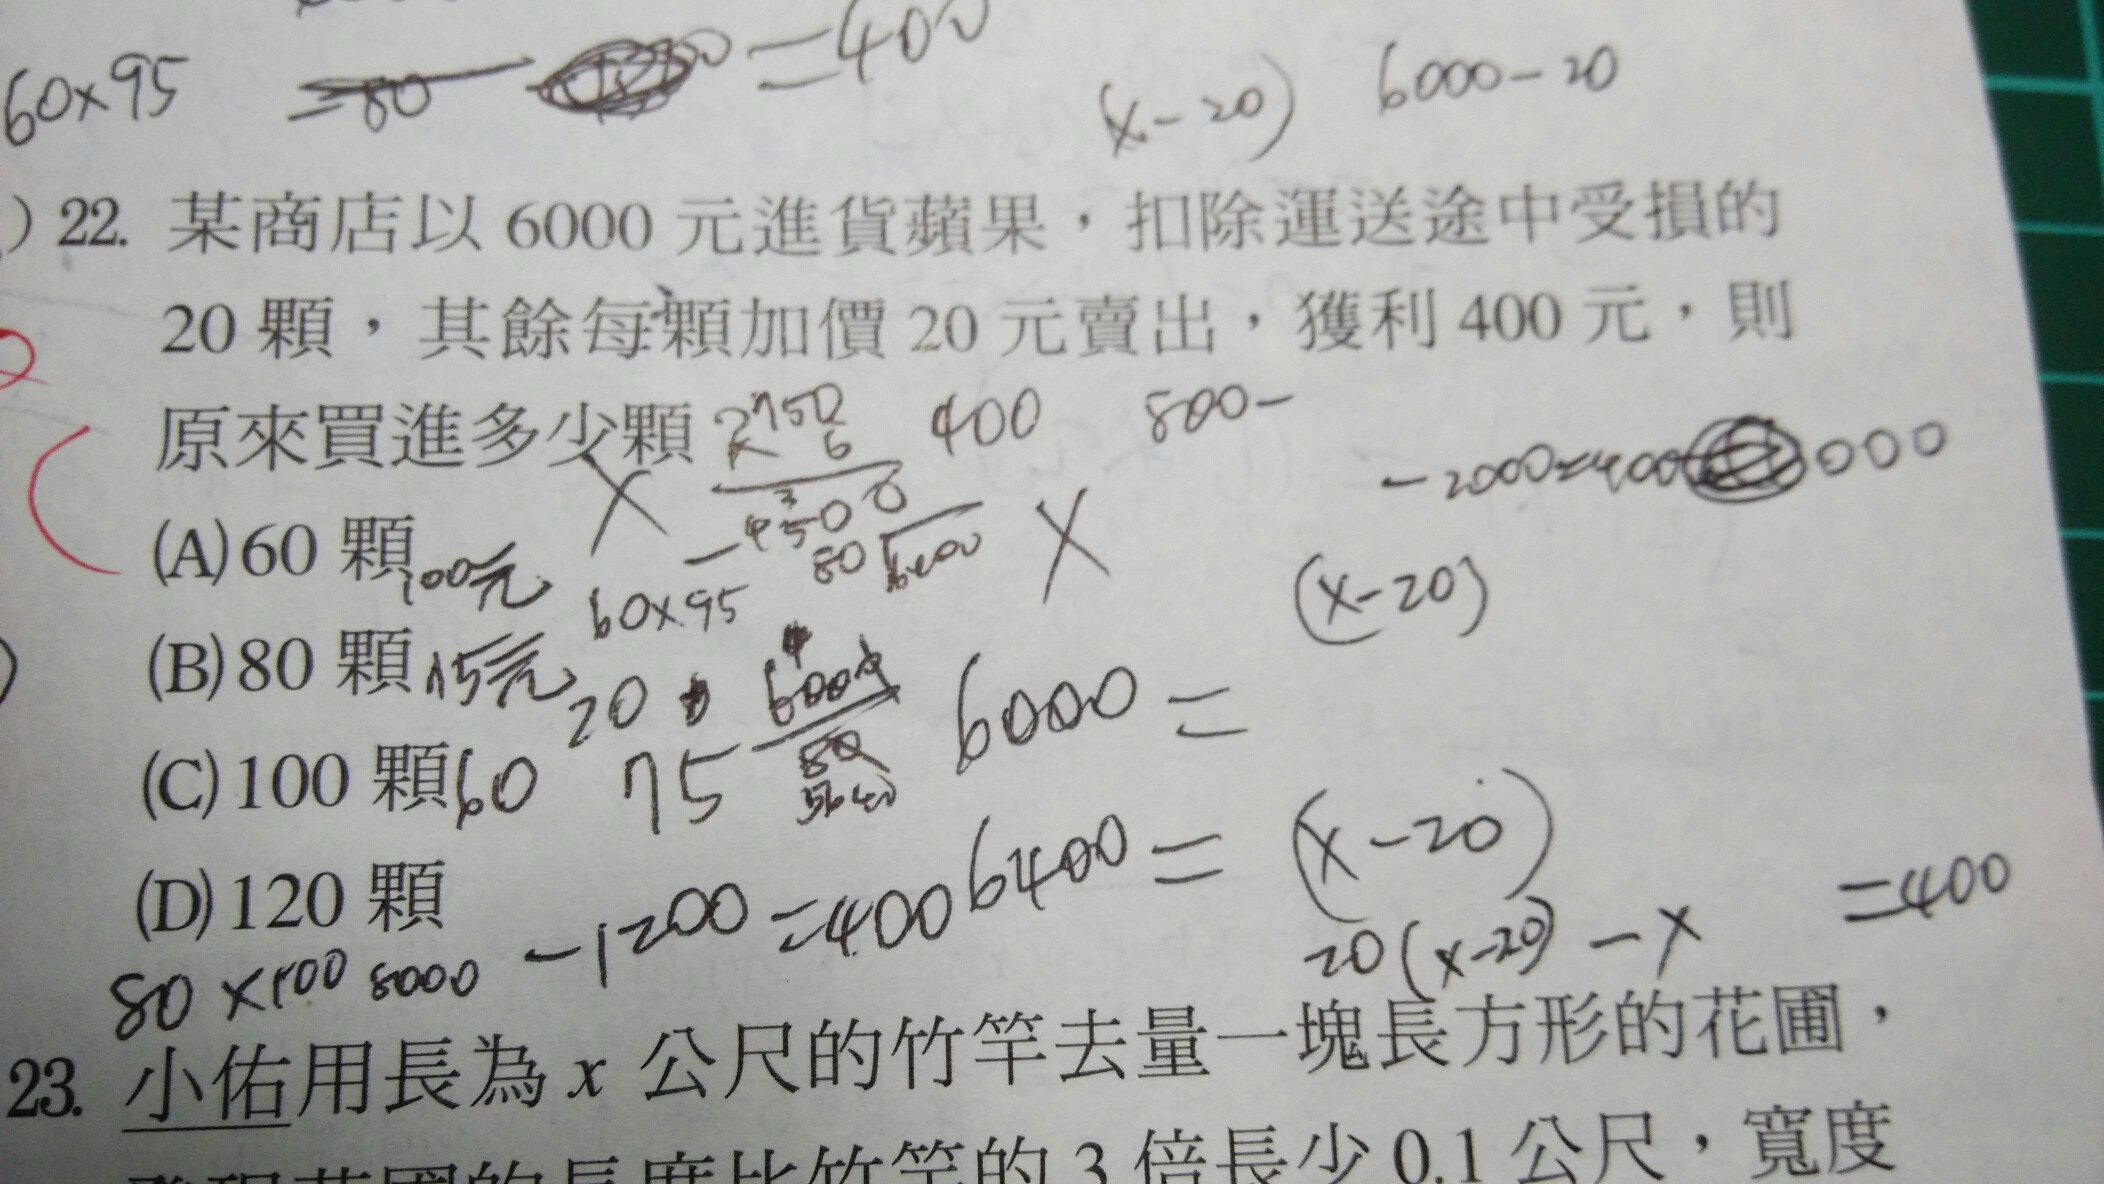 60×95
=80
=400
(x-20)
6000-20
)22. 某商店以 6000 元進貨蘋果，扣除運送途中受損的
20 顆，其餘每顆加價 20 元賣出，獲利 400 元，則
原來買進多少顆
400
800-
-2000=400
000
(A)60 顆 100元
×
80
6400
×
60×95
(x-20)
(B)80 顆 75元
20
6000
6000=
(C)100 顆 60
75
80
6400=(x-20)
(D)120 顆
-1200=400
20(x-20)-x =400
80×100 8000
23. 小佑用長為 x 公尺的竹竿去量一塊長方形的花圃，
發現花圃的長度比竹竿的 3 倍長少 0.1 公尺，寬度